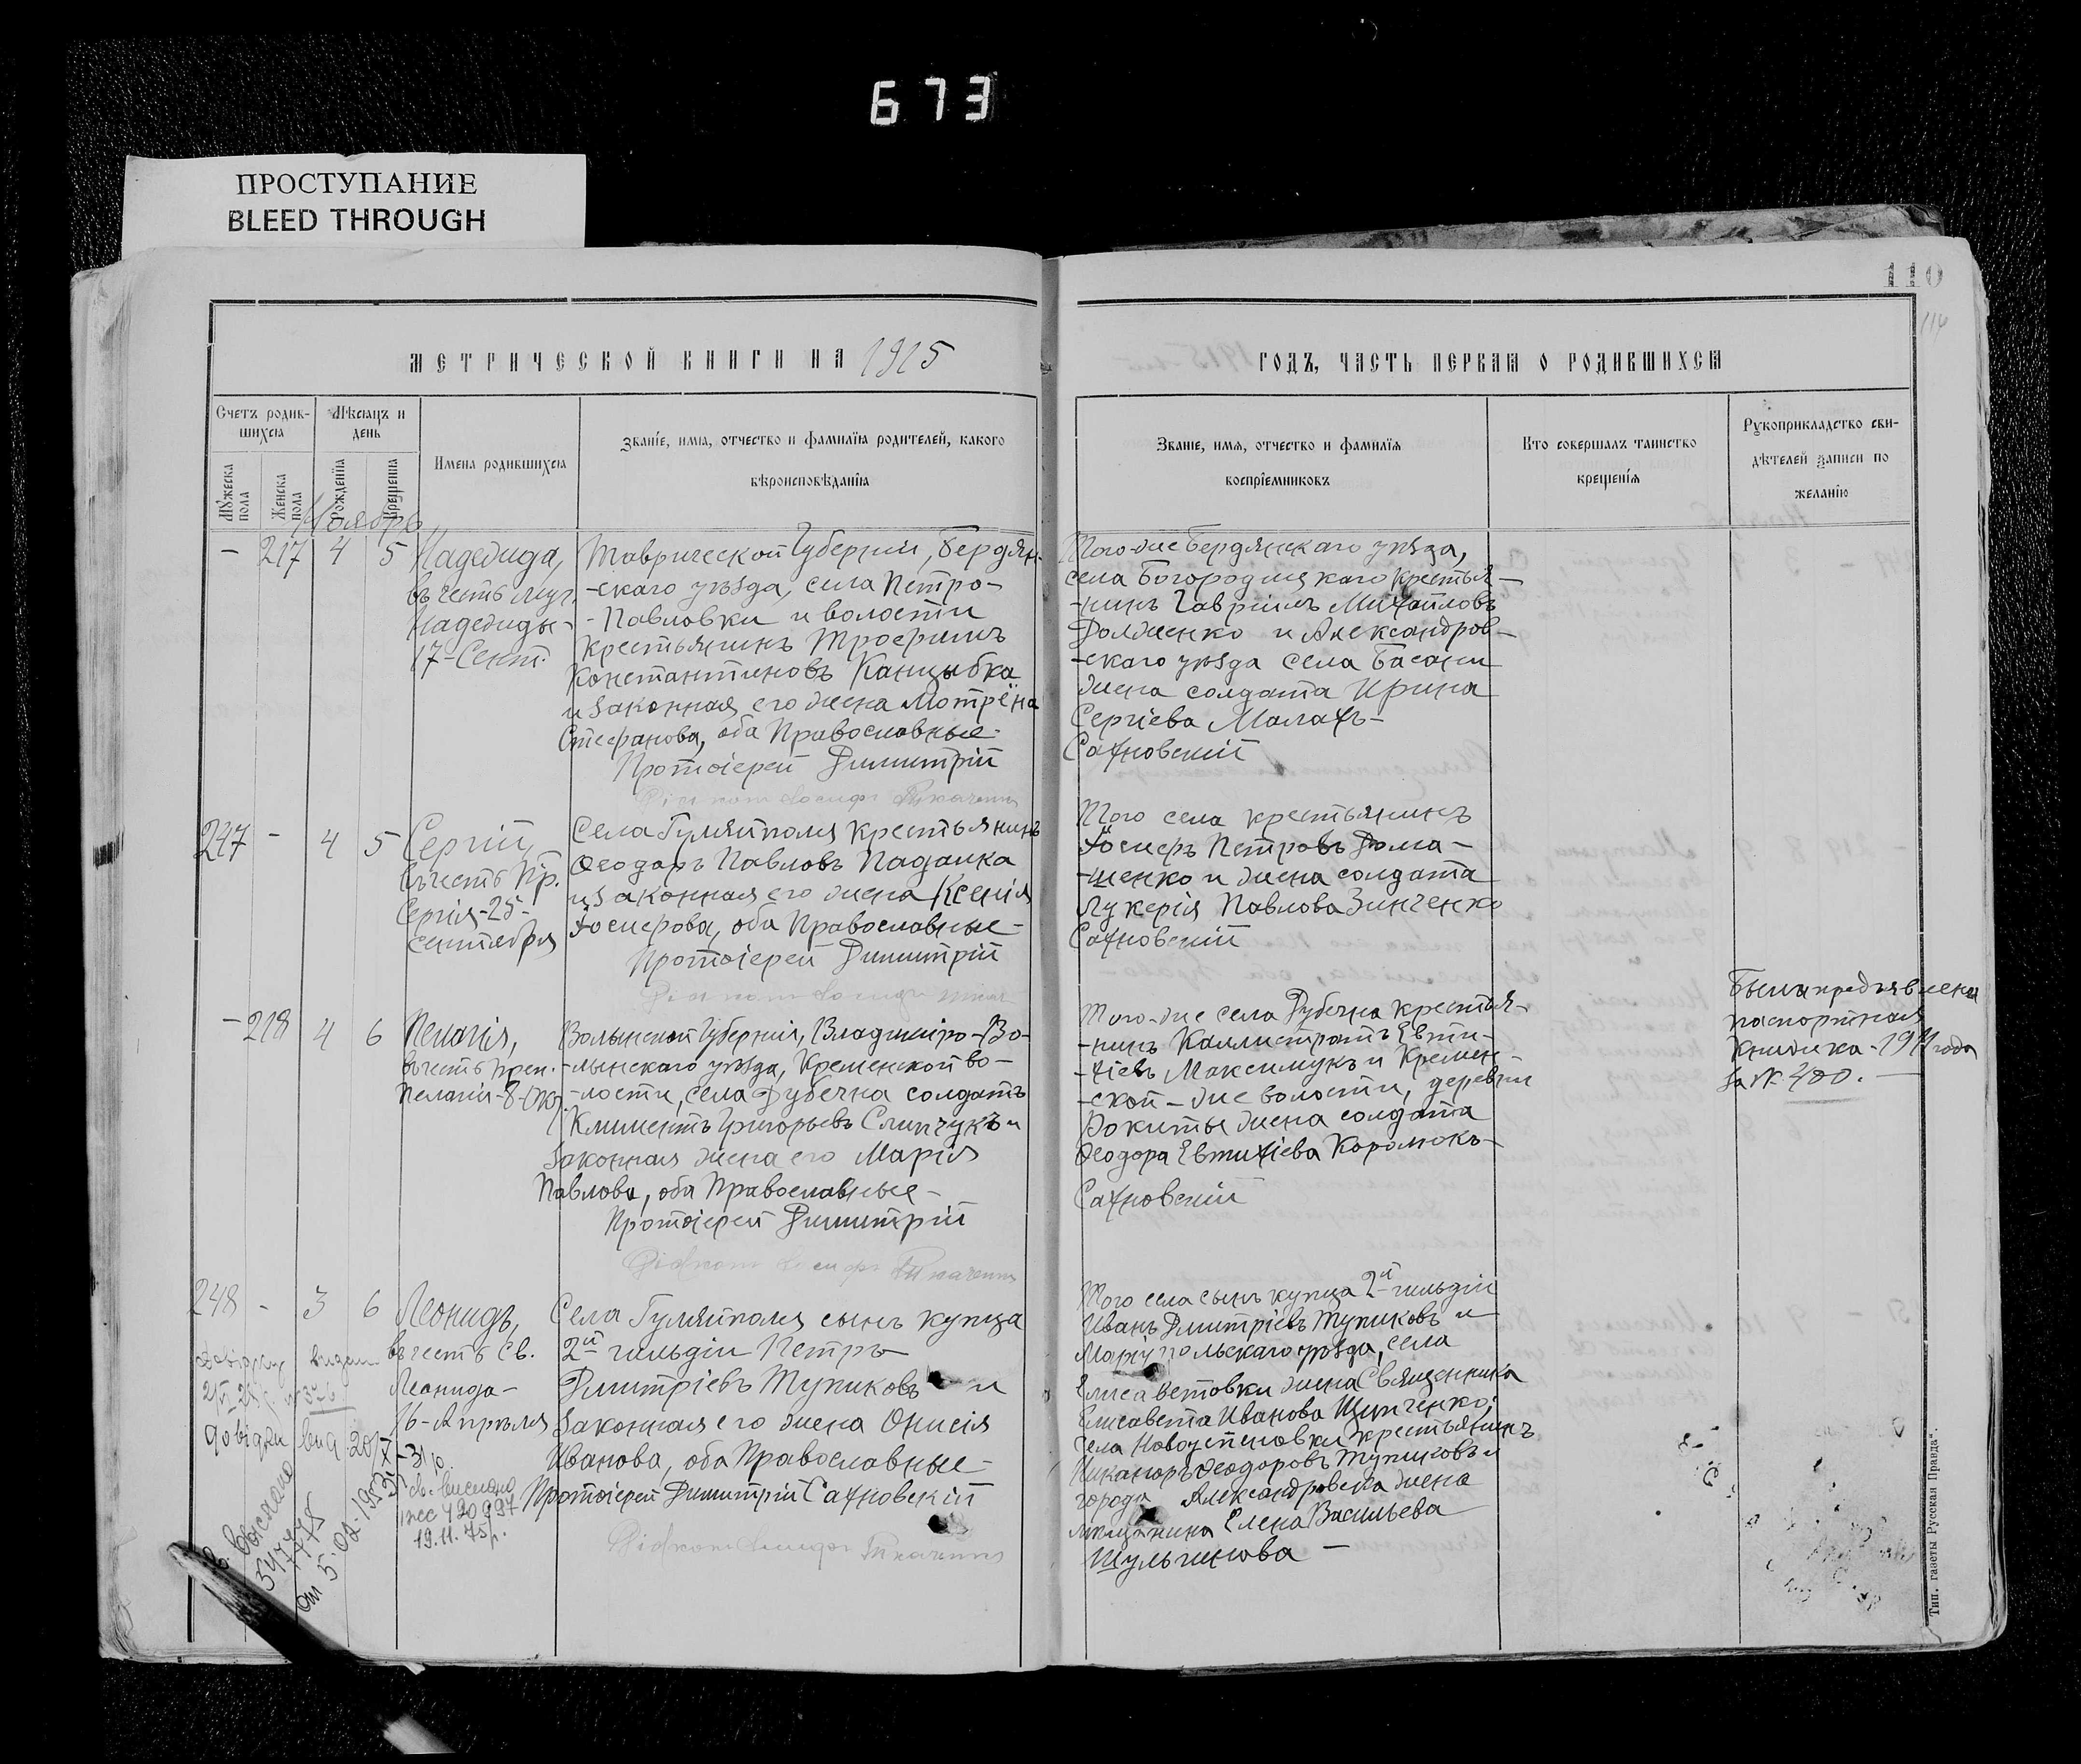 673
ПРОСТУПАНИЕ
BLEED THROUGH
110
114
МЕТРИЧЕСКОЙ КНИГИ НА 1915
ГОДЪ, ЧАСТЬ ПЕРВАЯ О РОДИВШИХСЯ
Счетъ родив-
шихся
Мѣсяцъ и
день
Мужеска
пола
Женска
пола
Рожденія
Крещенія
Имена родившихся
Званіе, имя, отчество и фамилія родителей, какого
вѣроисповѣданія
Званіе, имя, отчество и фамилія
воспріемниковъ
Кто совершалъ таинство
крещенія
Рукоприкладство сви-
дѣтелей записи по
желанію
Ноябрь
— 217 4 5
Надежда,
въ честь муч.
Надежды-
17-Сент.
Таврической Губерніи, Бердян-
-скаго уѣзда, села Петро-
-Павловки и волости
крестьянинъ Трофимъ
Константиновъ Канцыбка
и законная его жена Мотрёна
Стефанова, оба Православные-
Протоіерей Димитрій
Того-же Бердянскаго уѣзда,
села Богородицкаго крестья-
-нинъ Гавріилъ Михайловъ
Долженко и Александров-
-скаго уѣзда села Басани
жена солдата Ирина
Сергіева Малахъ-
Сахновскій
247 - 4 5
Сергій,
въ честь Пр.
Сергія-25-
сентября
Села Гуляйполя крестьянинъ
Ѳеодоръ Павловъ Падалка
и законная его жена Ксенія
Іосифова, оба Православные-
Протоіерей Димитрій
Того села крестьянинъ
Іосифъ Петровъ Дома-
-шенко и жена солдата
Лукерія Павлова Зинченко
Сахновскій
— 218 4 6
Пелагія,
въ честь Преп.
Пелагіи-8-Окт.
Волынской Губерніи, Владиміро-Во-
-лынскаго уѣзда, Кременской во-
-лости, села Дубечна солдатъ
Климентъ Григорьевъ Слипчукъ и
законная жена его Марія
Павлова, оба Православные-
Протоіерей Димитрій
Того-же села Дубечна крестья-
-нинъ Каллистратъ Евти-
-хіевъ Максимукъ и Кремен-
-ской-же волости, деревни
Рокиты жена солдата
Ѳеодора Евтихіева Королюкъ-
Сахновскій
Была предъявлена
паспортная
книжка-1914 года
за № 480. —
248 - 3 6
Леонидъ,
въ честь Св.
Леонида-
16-Апрѣля
Села Гуляйполя сынъ купца
2й гильдіи Петръ
Дмитріевъ Тупиковъ и
законная его жена Онисія
Иванова, оба Православные-
Протоіерей Димитрій Сахновскій
Того села сынъ купца 2й гильдіи
Иванъ Дмитріевъ Тупиковъ и
Маріупольскаго уѣзда, села
Елисаветовки жена Священника
Елисавета Иванова Щипченко;
села Новоуспеновки крестьянинъ
Никаноръ Ѳеодоровъ Тупиковъ и
города Александровска жена
мѣщанина Елена Васильева
Шульгинова —
19.11.75р.
Тип. газеты Русская Правда".